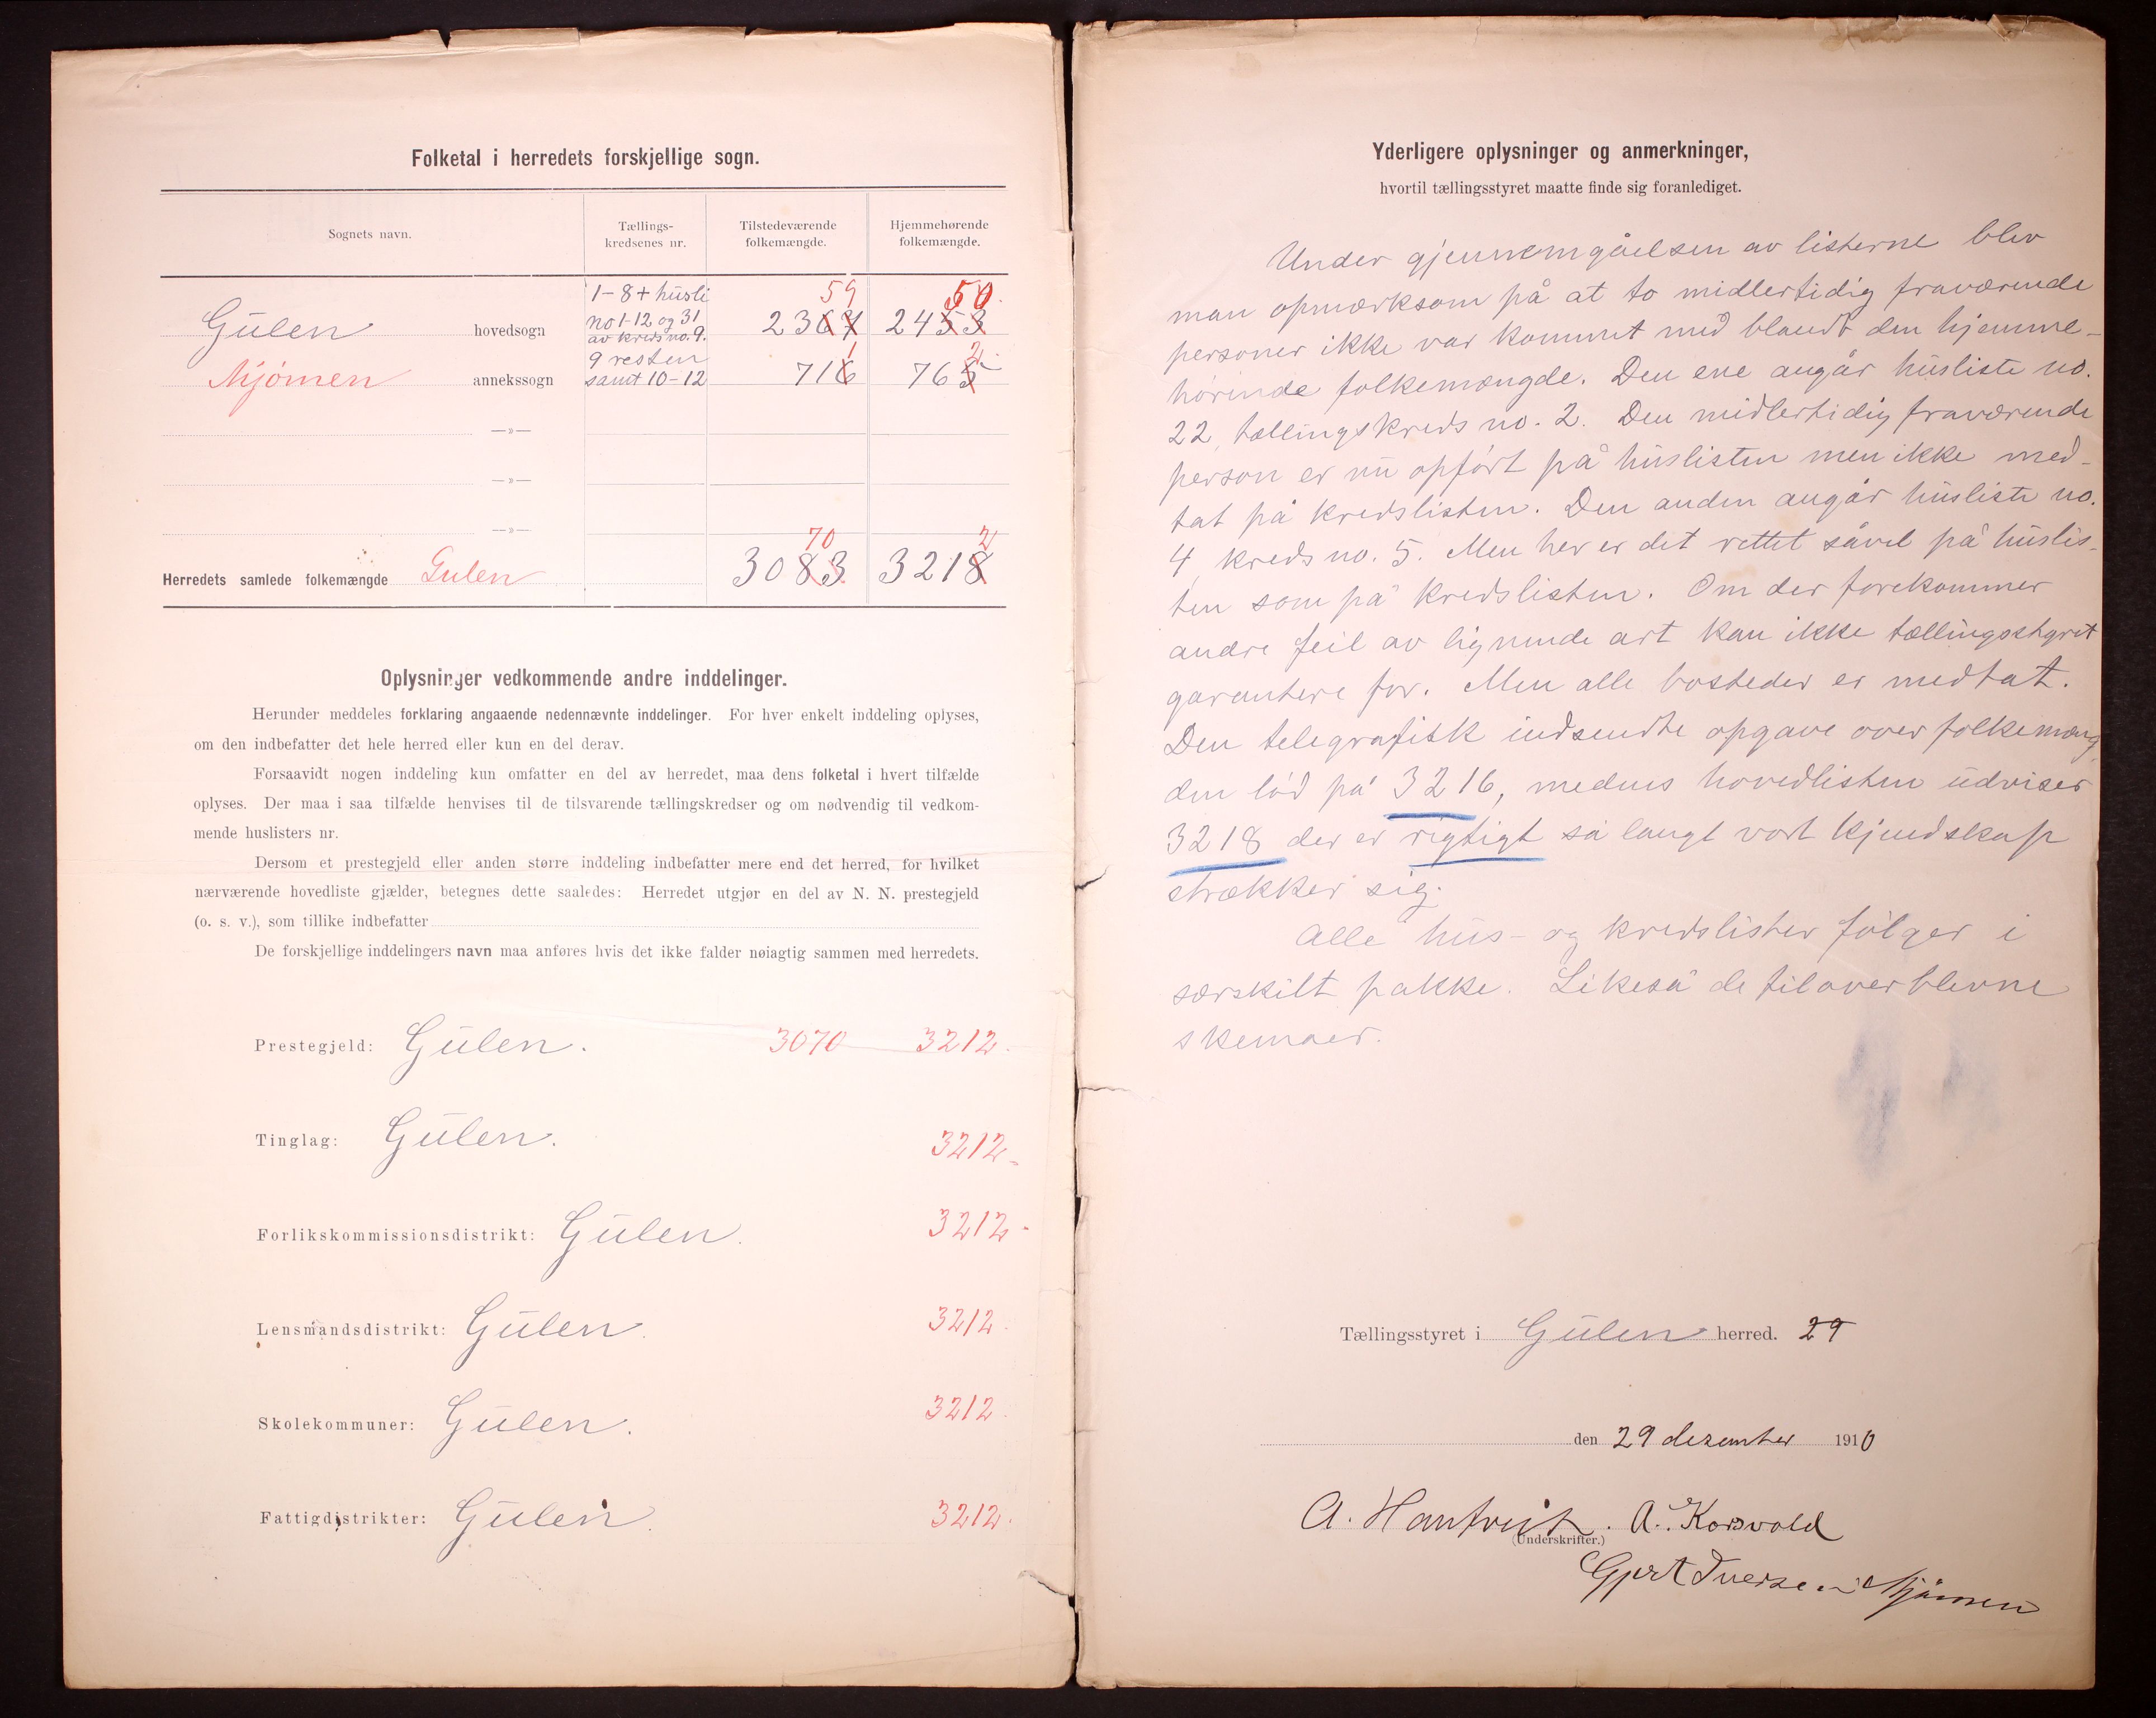 Folketal i herredets forskjellige sogn.
Sognets navn.
Tællings-
kredsenes nr.
Tilstedeværende
folkemængde.
Hjemmehørende
folkemængde.
1-8 + husli
no 1-12 og 31
av kreds no. 9.
59
50.
Gulen hovedsogn 2367 2453
9 resten
samt 10-12
1
2
Mjømen annekssogn 716 765
—»—
—»—
—»—
70
2
Herredets samlede folkemængde Gulen 3083 3218
Oplysninger vedkommende andre inddelinger.
Herunder meddeles forklaring angaaende nedennævnte inddelinger. For hver enkelt inddeling oplyses,
om den indbefatter det hele herred eller kun en del derav.
Forsaavidt nogen inddeling kun omfatter en del av herredet, maa dens folketal i hvert tilfælde
oplyses. Der maa i saa tilfælde henvises til de tilsvarende tællingskredser og om nødvendig til vedkom-
mende huslisters nr.
Dersom et prestegjeld eller anden større inddeling indbefatter mere end det herred, for hvilket
nærværende hovedliste gjælder, betegnes dette saaledes: Herredet utgjør en del av N. N. prestegjeld
(o. s. v.), som tillike indbefatter
De forskjellige inddelingers navn maa anføres hvis det ikke falder nøiagtig sammen med herredets.
Prestegjeld: Gulen. 3070 3212.
Tinglag: Gulen. 3212
Forlikskommissionsdistrikt: Gulen. 3212
Lensmandsdistrikt: Gulen. 3212
Skolekommuner: Gulen. 3212
Fattigdistrikter: Gulen. 3212
Yderligere oplysninger og anmerkninger,
hvortil tællingsstyret maatte finde sig foranlediget.
Under gjennemgåelsen av listerne blev
man opmærksom på at to midlertidig fraværende
personer ikke var kommet med blandt den hjemme-
hørende folkemængde. Den ene angår husliste no.
22, tællingskreds no. 2. Den midlertidig fraværende
person er nu opført på huslisten men ikke med-
tat på kredslisten. Den anden angår husliste no.
4, kreds no. 5. Men her er det rettet såvel på huslis-
ten som på kredslisten. Om der forekommer
andre feil av lignende art kan ikke tællingsstyret
garantere for. Men alle bosteder er medtat.
Den telegrafisk indsendte opgave over folkemæng
den lød på 3216, medens hovedlisten udviser
3218 der er rigtigt så langt vort kjendskap
strækker sig.
Alle hus- og kredslister følger i
særskilt pakke. Likeså de tiloverblevne
skemaer.
Tællingsstyret i Gulen herred. 29
den 29 dezember 1910
A. Hantveit. A. Korsvold
(Underskrifter.)
Gjert Iversen Mjømen